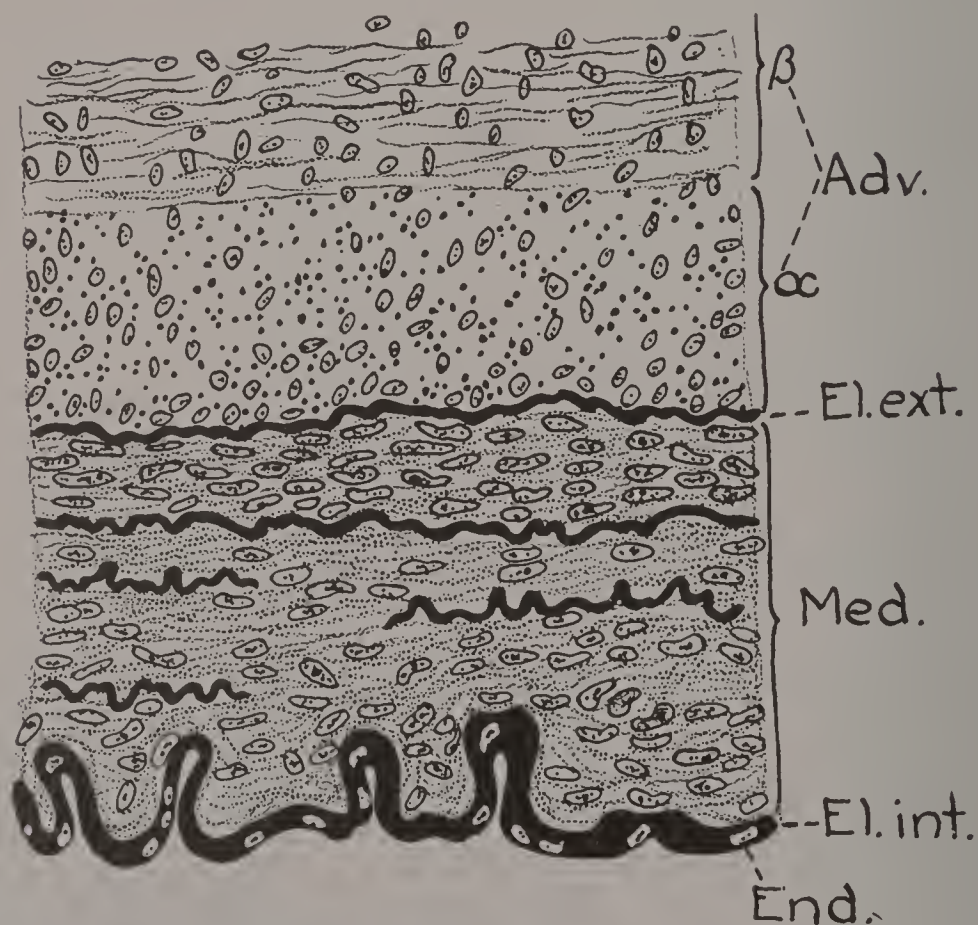 β
Adv.
α
El. ext.
Med.
El. int.
End.